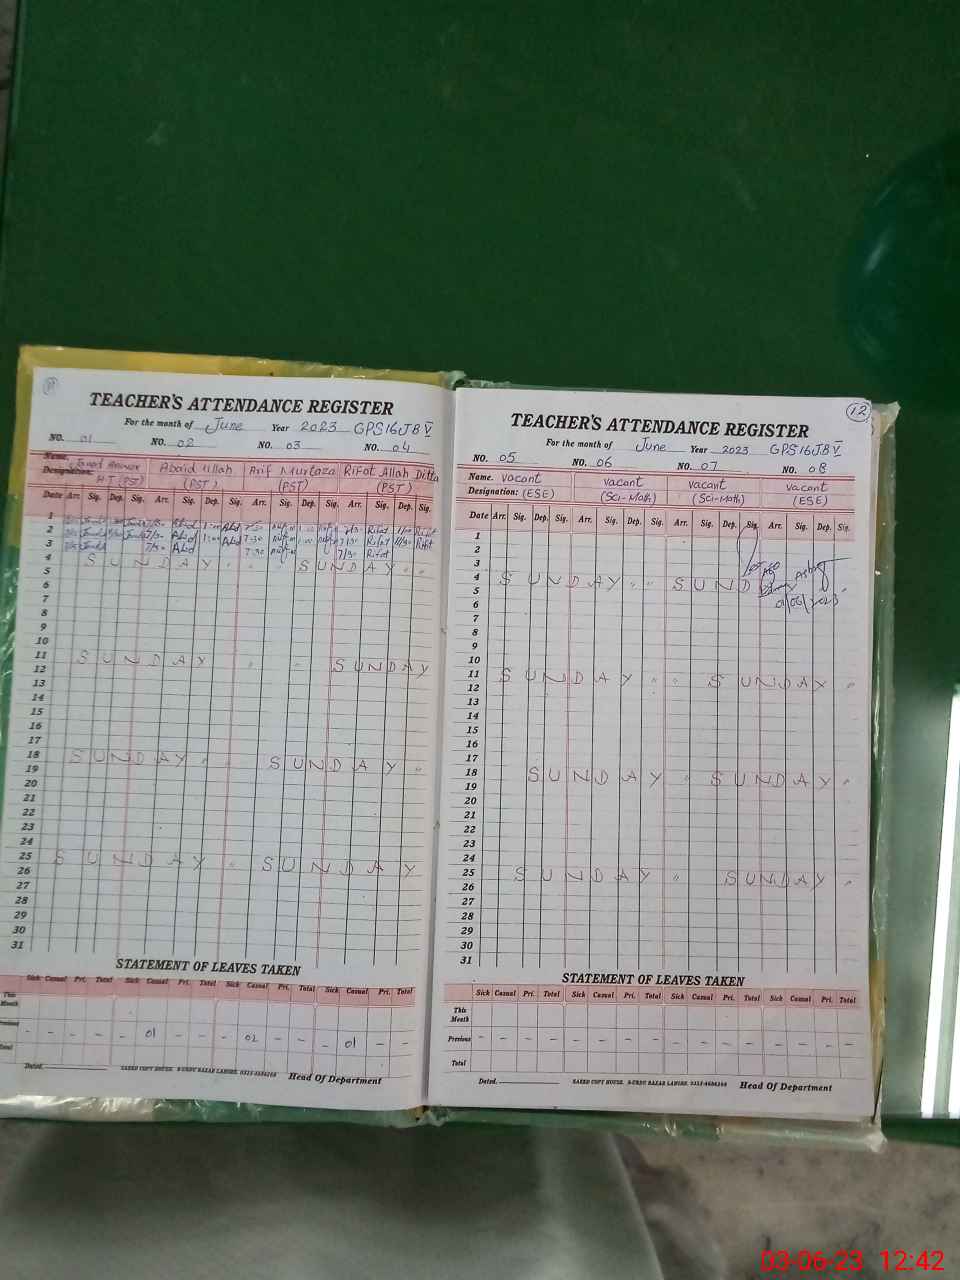 TEACHER'S ATTENDANCE REGISTER
For the month of June Year 2023 GPS 16 JB V
NO. 01 NO. 02 NO. 03 NO. 04
Name: Anwar Abaid Ullah Arif Murtaza Rifat Allah Ditta
Designation: HT (PST) (PST) (PST) (PST)
Date Arr. Sig. Dep. Sig. Arr. Sig. Dep. Sig. Arr. Sig. Dep. Sig. Arr. Sig. Dep. Sig.
1 7/30 Abid 1:00 Abd 7:30 7/30 Rifat Rifat
2 7/30 Abd 1:00 Abd 7:30 7/30 Rifat 11/30 Rifat
3 7/30 Abd 7:30 7/30 Rifat
4 SUNDAY " " " SUNDAY " "
5
6
7
8
9
10
11 SUNDAY " " SUNDAY
12
13
14
15
16
17
18 SUNDAY " " SUNDAY "
19
20
21
22
23
24
25 SUNDAY " SUNDAY
26
27
28
29
30
31
STATEMENT OF LEAVES TAKEN
Sick Casual Pri. Total Sick Casual Pri. Total Sick Casual Pri. Total Sick Casual Pri. Total
This Month
Previous - - - - - 01 - - - 02 - - - 01 - -
Total
Dated. SAEED COPY HOUSE. Head Of Department
12
TEACHER'S ATTENDANCE REGISTER
For the month of June Year 2023 GPS 16 JB V
NO. 05 NO. 06 NO. 07 NO. 08
Name. Vacant Vacant Vacant Vacant
Designation: (ESE) (Sci-Math) (Sci-Math) (ESE)
Date Arr. Sig. Dep. Sig. Arr. Sig. Dep. Sig. Arr. Sig. Dep. Sig. Arr. Sig. Dep. Sig.
1
2
3
4 SUNDAY " " SUND "
5
6
7
8
9
10
11 SUNDAY " " SUNDAY "
12
13
14
15
16
17
18 SUNDAY " SUNDAY "
19
20
21
22
23
24
25 SUNDAY " SUNDAY "
26
27
28
29
30
31
STATEMENT OF LEAVES TAKEN
Sick Casual Pri. Total Sick Casual Pri. Total Sick Casual Pri. Total Sick Casual Pri. Total
This Month
Previous - - - - - - - - - - - - - - - -
Total
Dated. SAEED COPY HOUSE. Head Of Department
03-06-23 12:42